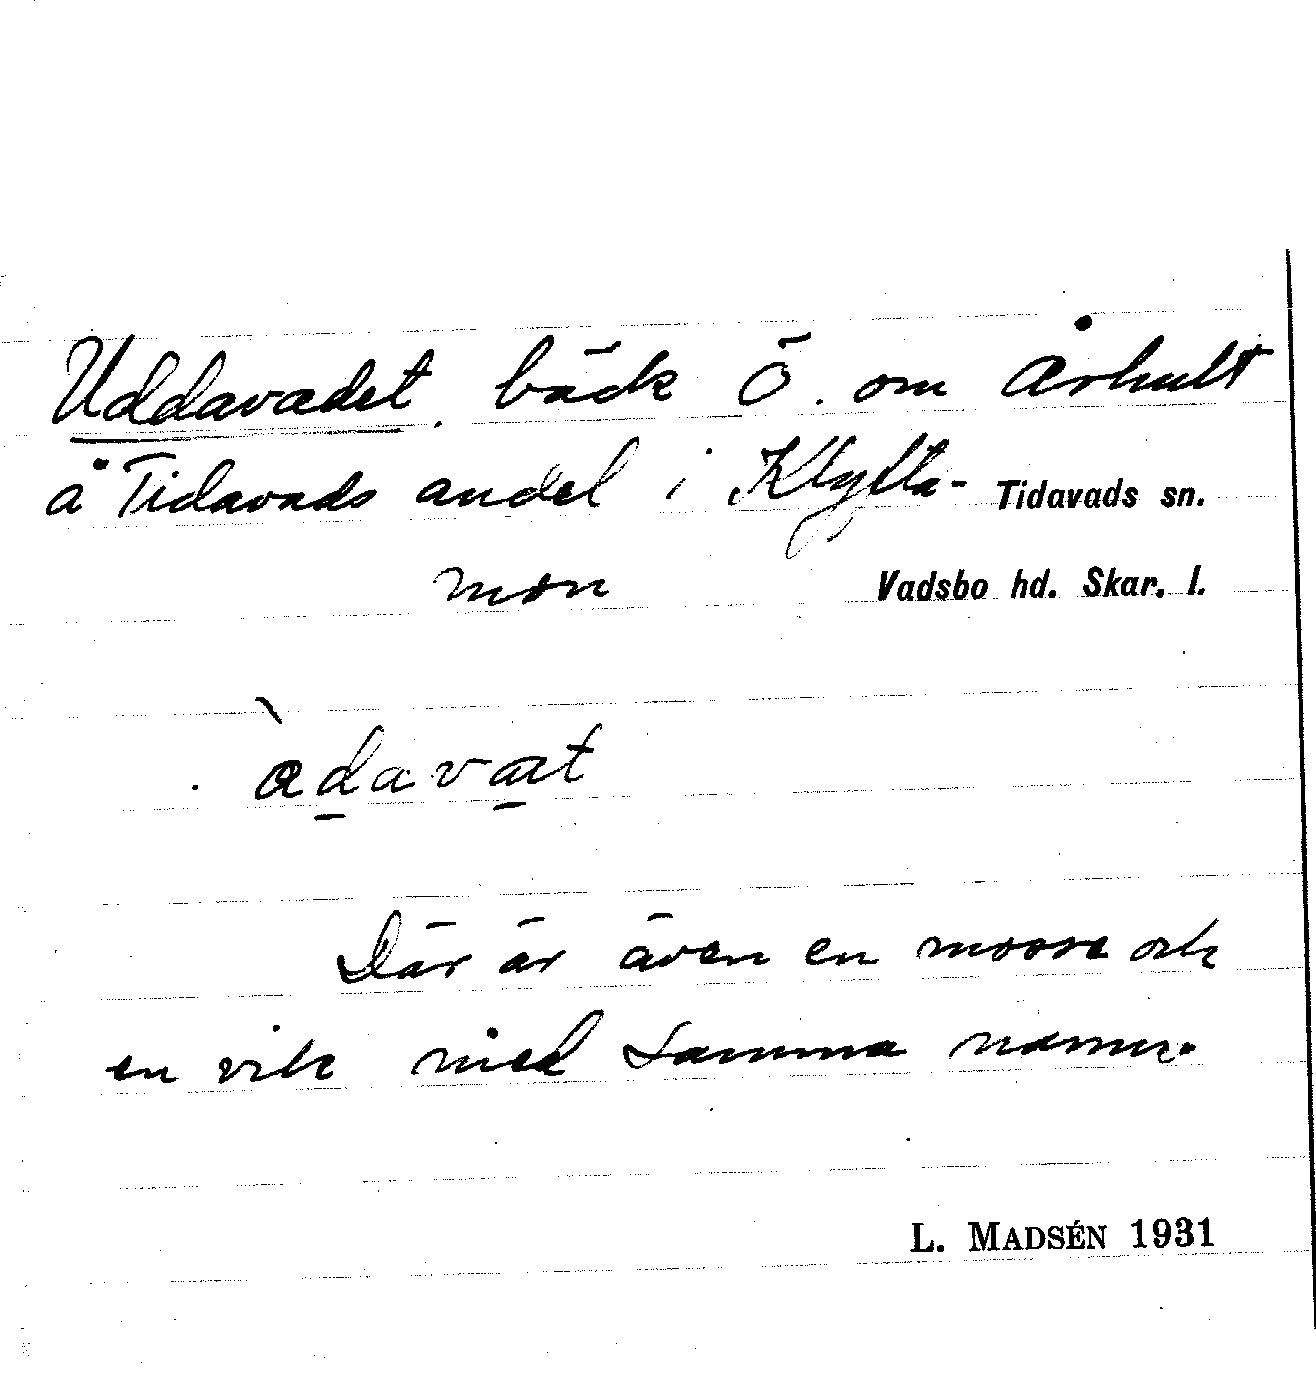 Uddavadet. bäck Ö. om Århult
å Tidavads andel i Klyfta- Tidavads sn.
mon Vadsbo hd. Skar. l.
Där är även en mosse och
en vik med samma namn.
L. MADSÉN 1931